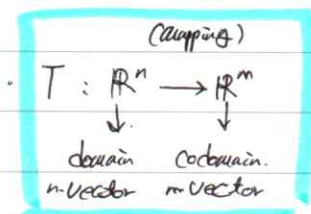 (mapping)
· T : ℝⁿ → ℝᵐ
↓ ↓
domain codomain.
n-vector m-vector